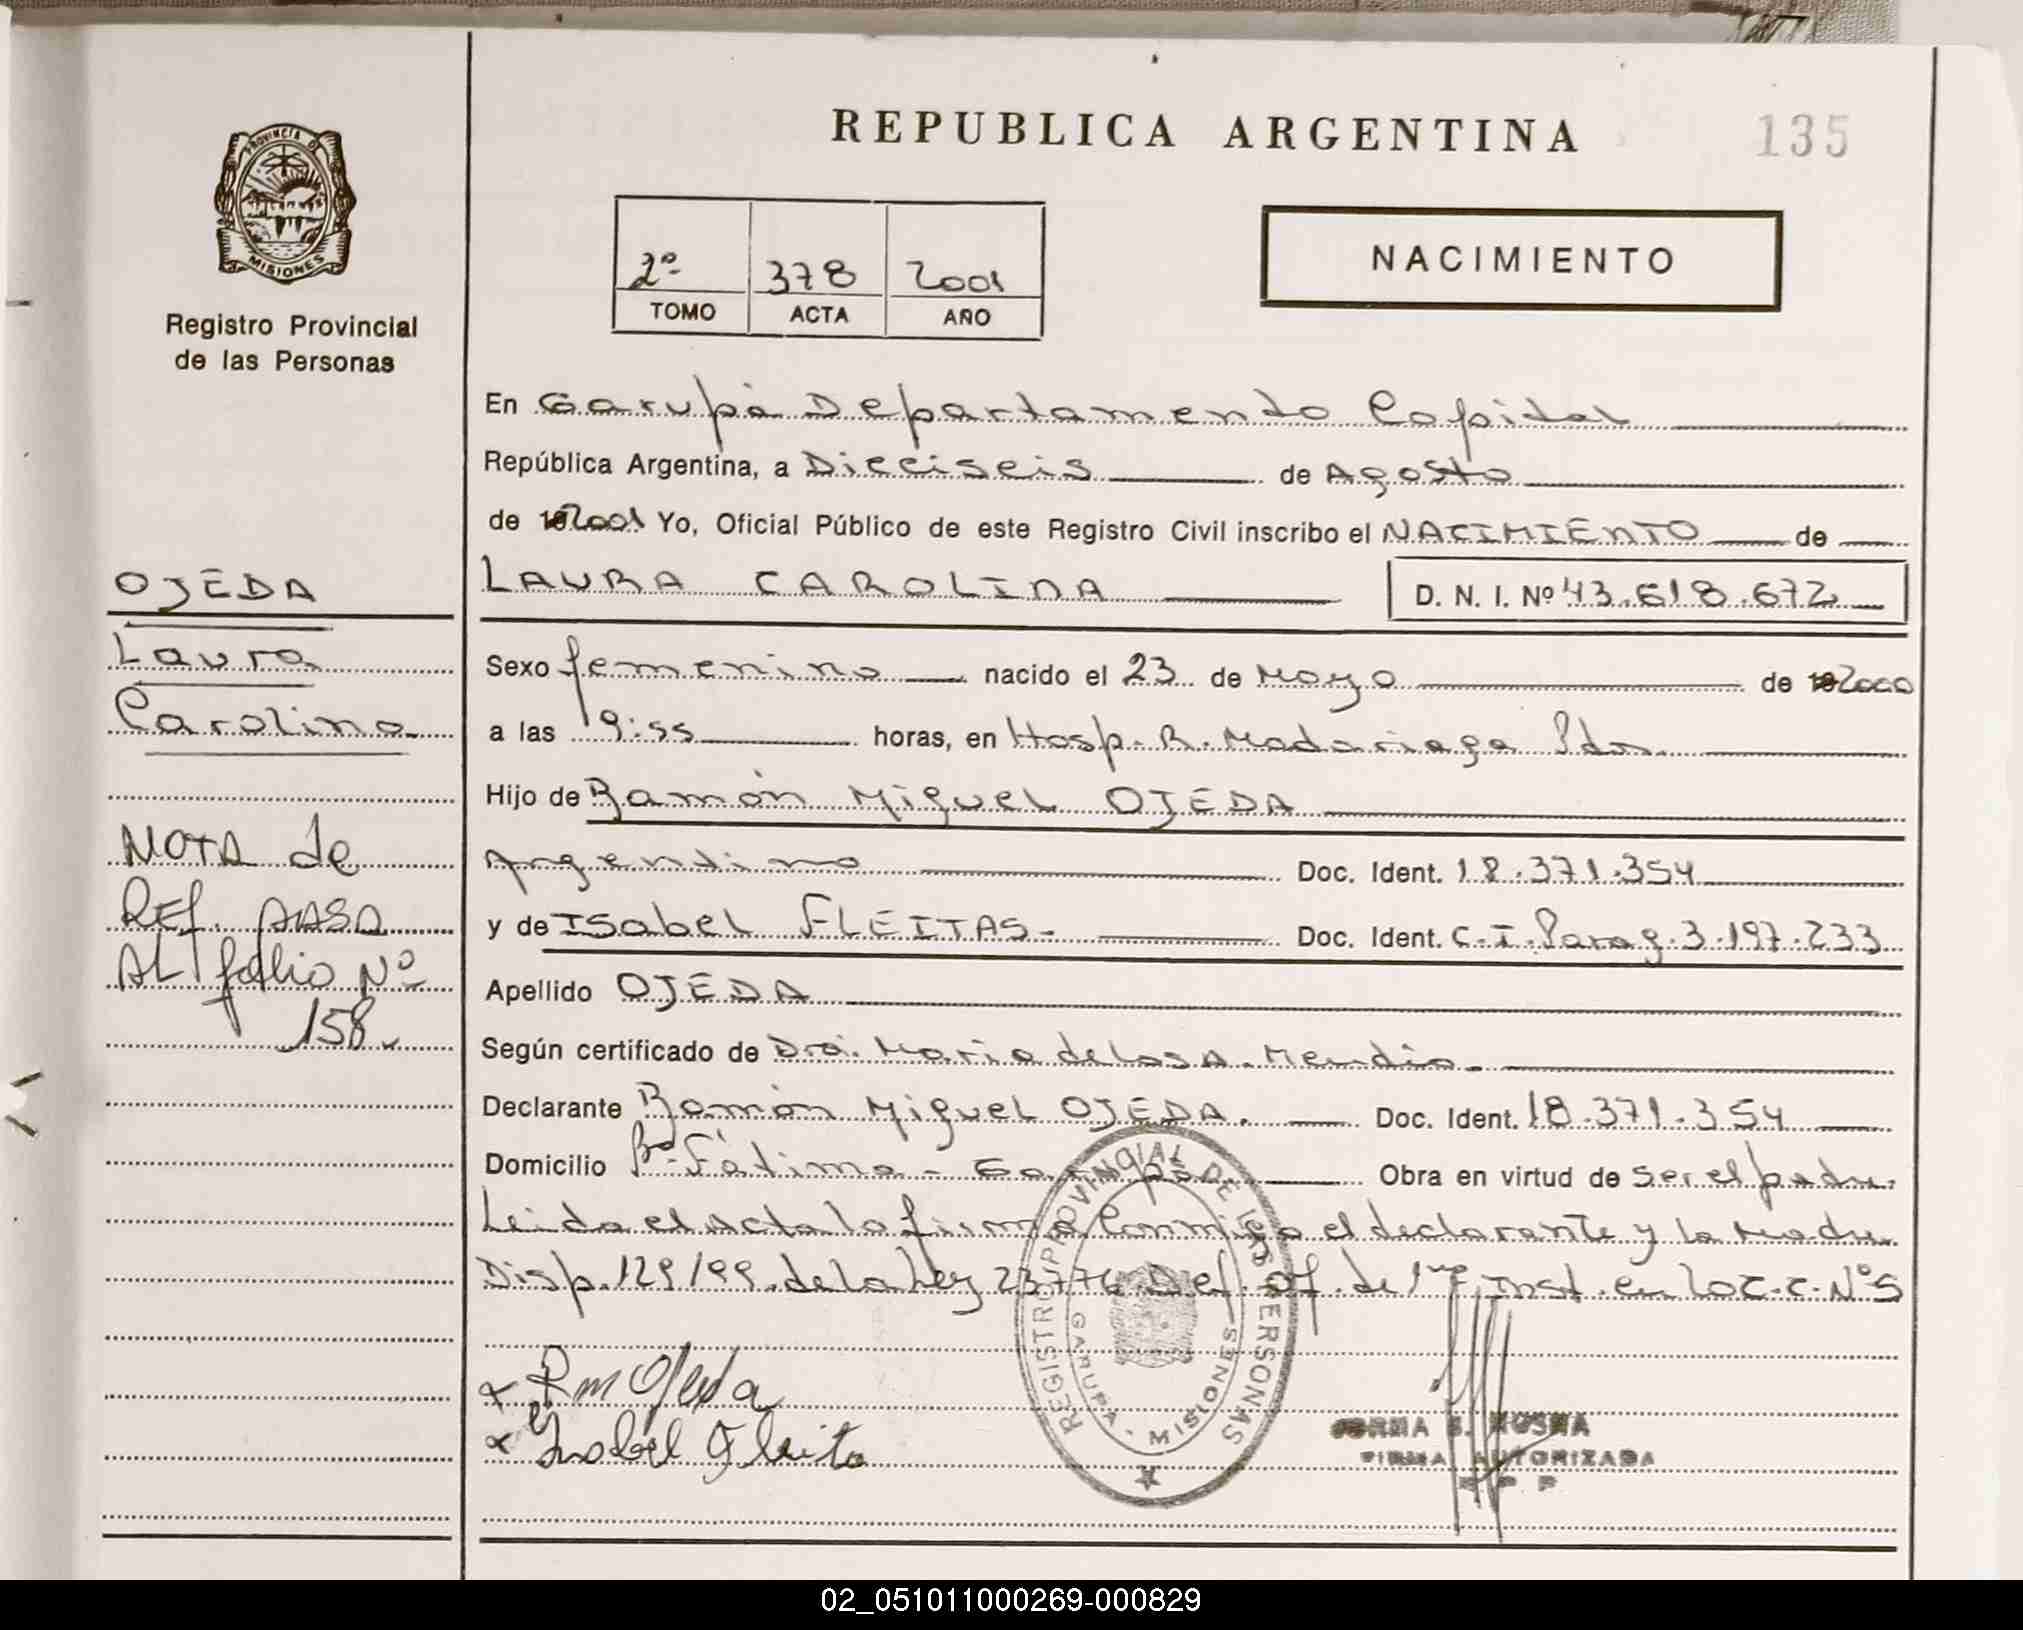 REPUBLICA ARGENTINA
135
PROVINCIA D
MISIONES
Registro Provincial
de las Personas
2º TOMO
378 ACTA
2001 AÑO
NACIMIENTO
En Garupá Departamento Capital
República Argentina, a Dieciseis de Agosto
de 2001 Yo, Oficial Público de este Registro Civil inscribo el NACIMIENTO de
LAURA CAROLINA D. N. I. Nº 43.618.672
Sexo femenino nacido el 23 de Mayo de 2000
a las 19:55 horas, en Hosp. R. Madariaga Pdas.
Hijo de Ramón Miguel OJEDA
Argentino Doc. Ident. 18.371.354
y de Isabel FLEITAS.- Doc. Ident. C.I. Parag. 3.197.233
Apellido OJEDA
Según certificado de Dra. Maria de los A. Mendia.
Declarante Ramón Miguel OJEDA. Doc. Ident. 18.371.354
Domicilio Bº Fátima - Garupá Obra en virtud de ser el padre.
Leida el Acta la firma conmigo el declarante y la Madre
Disp. 129/99 de la Ley 23776 Def. Of. de 1ra Inst. en lo C.C. Nº 5
OJEDA
Laura
Carolina
NOTA de
REF. PASA
AL folio Nº
158
R m Ojeda
Isabel Fleita
REGISTRO PROVINCIAL DE LAS PERSONAS
GARUPA - MISIONES
FIRMA AUTORIZADA
02_051011000269-000829